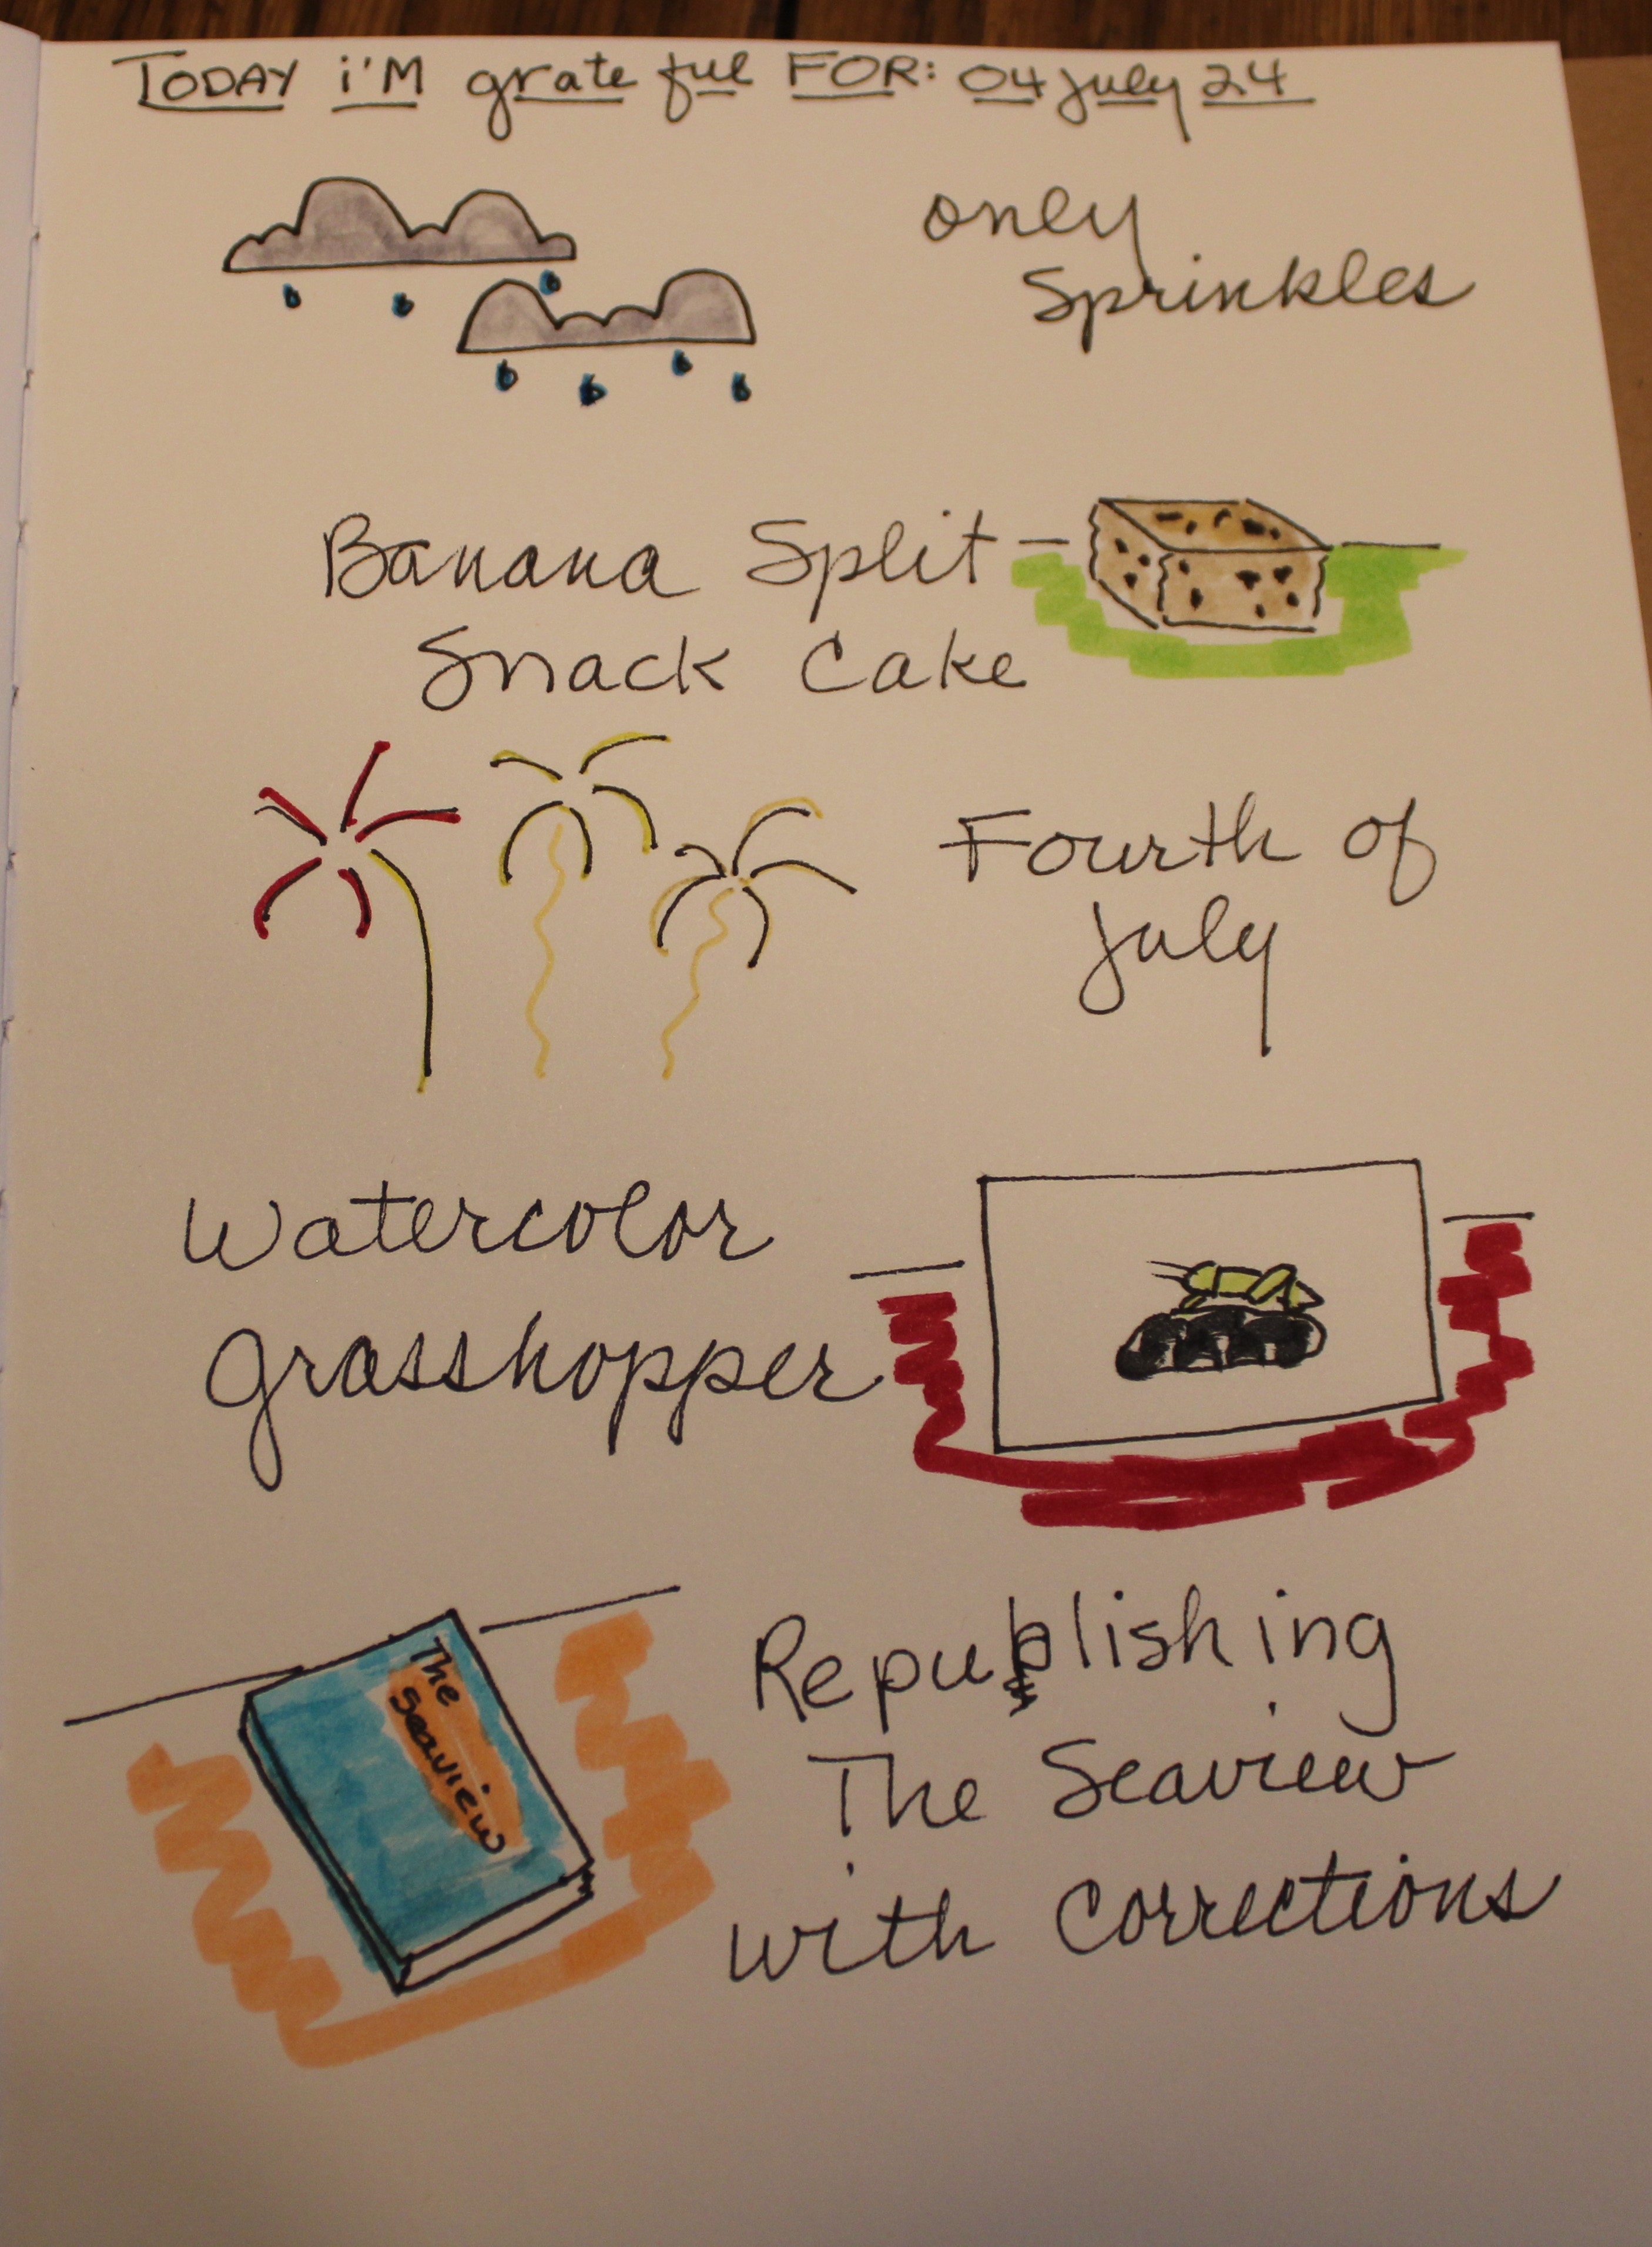 TODAY i'M grateful FOR: 04 july 24
only
Sprinkles
Banana Split
Snack Cake
Fourth of
july
Watercolor
grasshopper
The
Seaview
Republishing
The Seaview
with Corrections